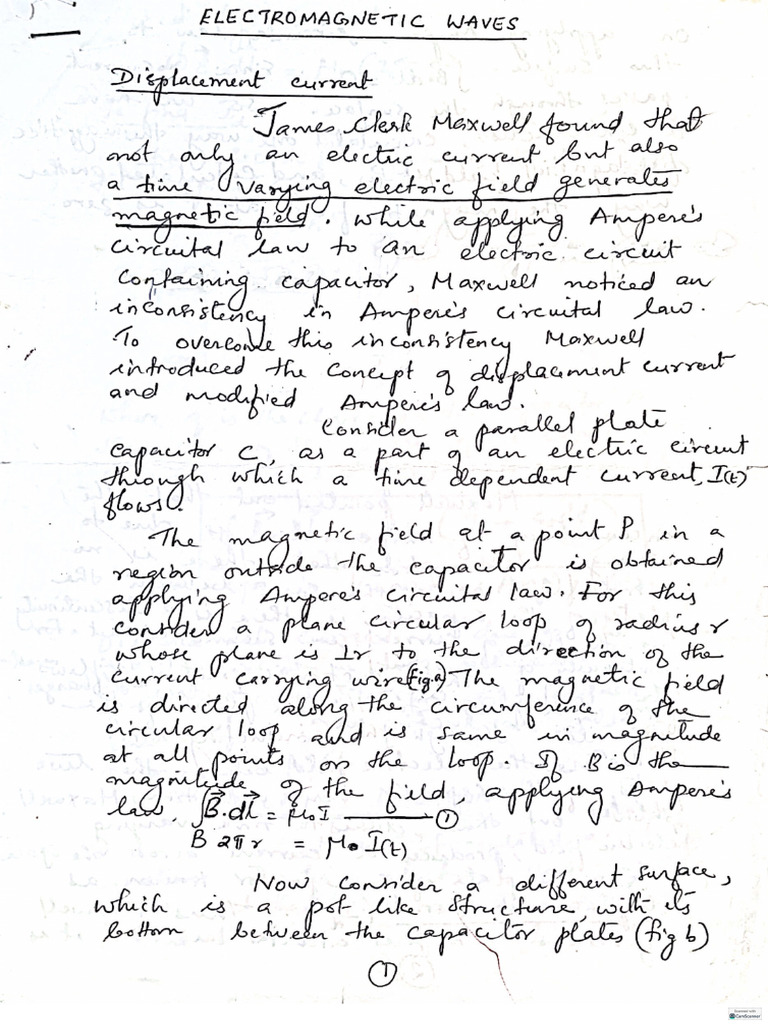 ELECTROMAGNETIC WAVES
Displacement current
James Clerk Maxwell found that
not only an electric current but also
a time varying electric field generates
magnetic field. While applying Ampere's
circuital law to an electric circuit
containing capacitor, Maxwell noticed an
inconsistency in Ampere's circuital law.
To overcome this inconsistency Maxwell
introduced the concept of displacement current
and modified Ampere's law.
Consider a parallel plate
capacitor C, as a part of an electric circuit
through which a time dependent current, I(t)
flows.
The magnetic field at a point P in a
region outside the capacitor is obtained
applying Ampere's circuital law. For this
consider a plane circular loop of radius r
whose plane is ⊥r to the direction of the
current carrying wire (fig.a) The magnetic field
is directed along the circumference of the
circular loop and is same in magnitude
at all points on the loop If B is the
magnitude of the field, applying Ampere's
law, ∫B⃗.dl⃗ = μ₀I ——— ①
B 2πr = μ₀ I(t)
Now consider a different surface,
which is a pot like structure, with its
bottom between the capacitor plates (fig b)
①
CamScanner